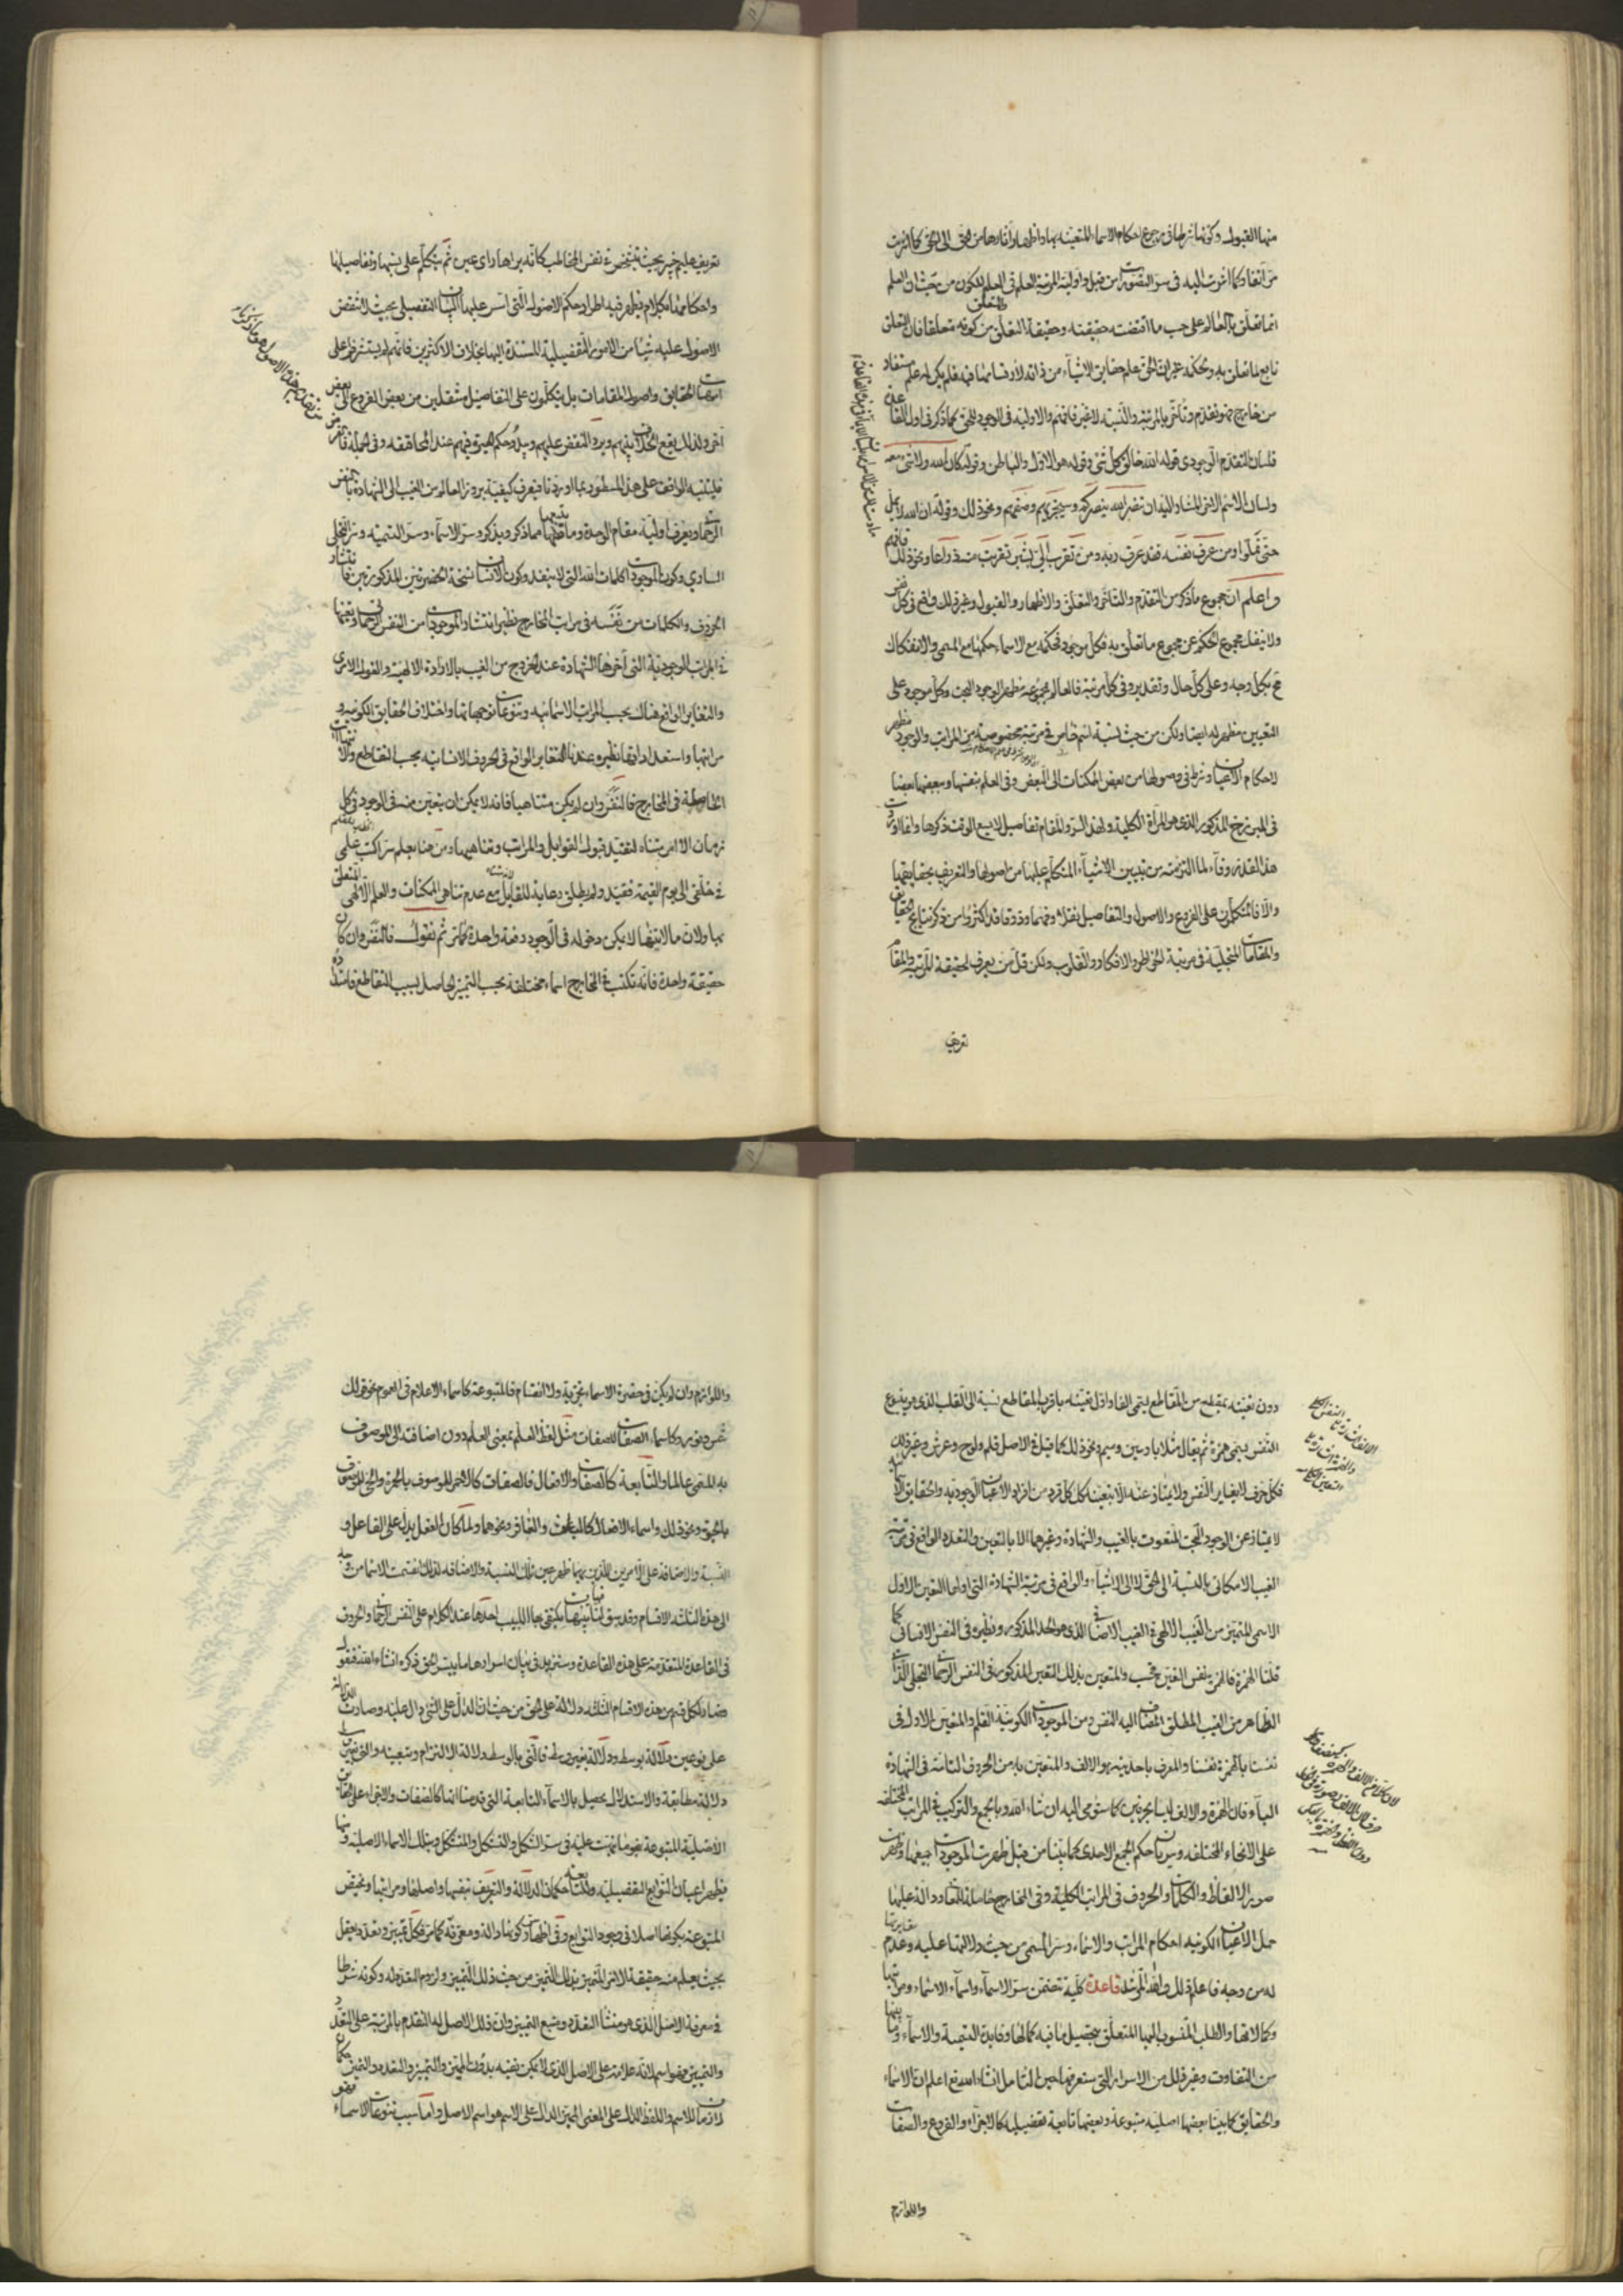 منها القبول وكونها شرطا في رجوع احكام الاسماء المتعينة بها واظهار آثارها من الحق الى الحق كما اشرت
من آنفا وكما اشرت اليه في سر التصورات من قبل واولية المرتبة العلم في العلم للكون من حيث ان العلم
انما تعلق بالعالم على حسب ما اقتضته حقيقته وحقيقة التعلق والمتعلق من كونه متعلقا فان التعلق
تابع لما تعلق به وبحكمه غير ان الحق علم حقايق الاشياء من ذاته لارتسامها فيه فلم يكن له علم مستفاد
من خارج فهو تقدم وتأخر بالمرتبة والنسبة لا غير فافهم والاولية في الوجود للحق كما ذكر في اول القاعدة
فلسان التقدم الوجودي قوله الله خالق كل شيء وقوله هو الاول والباطن وقوله كان الله ولا شيء معه
ولسان الاسم الآخر المشار اليه ان تنصروا الله ينصركم وسيجزيهم وصفهم ونحو ذلك وقوله ان الله لا يمل
حتى تملوا ومن عرف نفسه فقد عرف ربه ومن تقرب الي شبرا تقربت منه ذراعا ونحو ذلك فافهم
واعلم ان مجموع ما ذكر من التقدم والتأخر والتعلق والاظهار والقبول وغير ذلك واقع في كل نفس
ولا ينفك مجموع الحكم عن مجموع ما تعلق به فكل موجود فحكمه مع الاسماء حكمها مع المسمى والانفكاك
مح بكل وجه وعلى كل حال وتقدير وفي كل مرتبة فالعالم بمجموعه مظهر الوجود البحت وكل موجود على
التعيين مظهر له ايضا ولكن من حيث نسبة اسم خاص في مرتبة مخصوصة من المراتب والوجود مظهر
لاحكام الاعيان وشرط في وصولها من بعض الممكنات الى البعض وفي العلم بنفسها وببعضها بعضا
في البرزخ المذكور الذي هو المرآة الكلية ولهذا السر والمقام تفاصيل لا يسع الوقت ذكرها وانما اوردت
هذا القدر وفاء لما التزمته من تبيين الاشياء المتكلم عليها من اصولها والتعريف بحقايقها
والا فالمتكلمون على الفروع والاصول والتفاصيل نقلا وفهما وذوقا قد اكثروا من ذكر نتايج الحقايق
والمقامات المنجلية في مرتبة الخواطر والافكار والقلوب ولكن قل من يعرف الحقيقة المرتبة والمقام
تعريف
تعريف عليم خبير بحيث يتشخص في نفس المخاطب كانه يراها رأى عين ثم يتكلم على نسبها وتفاصيلها
واحكامها بكلام يظهر فيه اطراد حكم الاصول التي اسس عليها البيان التفصيلي بحيث لا تنقض
الاصول عليه شيئا من الامور التفصيلية المسندة اليها بخلاف الاكثرين فانهم لم يستشرفوا على
امهات الحقايق واصول المقامات بل يتكلمون على التفاصيل منتقلين من بعض الفروع الى بعض
آخر ولذلك يقع الخلاف بينهم ويرد النقض عليهم ويبدو حكم الحيرة فيهم عند المحاققة وفي الجملة
فليتنبه الواقف على هذا المسطور بما اوردنا فيعرف كيفية بروز العالم من الغيب الى الشهادة بالنفس
الرحماني ويعرف اولية مقام الوحدة وما يتبعها مما ذكر ويذكر وسر الاسماء وسر التسمية وسر التجلي
الساري وكون الموجودات كلمات الله التي لا ينفد وكون الانسان نسخة الحضرتين المذكورتين فانتشار
الحروف والكلمات من نفسه في مراتب المخارج نظير انتشار الموجودات من النفس الرحماني وتعينها
في المراتب الوجودية التي آخرها الشهادة عند الخروج من الغيب بالارادة الالهية والقول الامري
والتغاير الواقع هناك بحسب المراتب الاسمائية وتنوعات توجهاتها واختلاف الحقايق الكونية و
مراتبها واستعداداتها نظيره عندنا التغاير الواقع في الحروف الانسانية بحسب التقاطع والانتهاآت
الحاصلة في المخارج فالنفس وان لم يكن متناهيا فانه لا يمكن ان يتعين منه في الوجود في كل
زمان الا امر متناه لتقيد قبول القوابل والمراتب وتناهيها ومن هنا يعلم سر اكتب علمي
في خلقي الى يوم القيمة فقيد ولم يطلق رعاية للقابل مع عدم تناهي الممكنات والعلم الالهي المتعلق
بها ولان ما لا يتناهى لا يمكن دخوله في الوجود دفعة واحدة كما مر ثم نقول فالنفس وان كان
حقيقة واحدة فانه تكتسب في المخارج اسماء مختلفة بحسب التميز الحاصل بسبب التقاطع فامتداده
دون تعينه بمقطع من المقاطع يسمى الفا واول تعينه باقرب المقاطع نسبة الى القلب الذي هو ينبوع
النفس يسمى همزة ثم يقال مثلا باء وسين وميم ونحو ذلك كما قيل في الاصل قلم ولوح وعرش وغير ذلك
فكل حرف لا يغاير النفس ولا يمتاز عنه الا بتعينه كل فرد من افراد الاعيان الوجودية والحقايق
لا يمتاز عن الوجود البحت المنعوت بالغيب والشهادة وغيرهما الا بالتعين والتعدد الواقع في مرتبة
الغيب الامكاني بالنسبة الى الحق لا الى الاشياء والواقع في مرتبة الشهادة التي اولها التعين الاول
الاسمي المتميز من الغيب الالهي في الغيب الاضافي الذي هو الحد المذكور ونظيره في النفس الانساني كما
قلنا الهمزة فالهمزة نفس التعين فحسب والمتعين بذلك التعين المذكور في النفس الرحماني التجلي الذاتي
الظاهر من الغيب المطلق المضاف اليه النفس ومن الموجودات الكونية القلم والمتعين الاول في
نفسنا بالهمزة نفسنا والمعرف باحديته هو الالف والمتعين به من الحروف التامة في الشهادة
الباء فان الهمزة والالف ليسا بحرفين كما ستومي اليه ان شاء الله وبالجمع والتركيب في المراتب المختلفة
على الانحاء المختلفة وسريان حكم الجمع الاحدي كما بينا من قبل ظهرت الموجودات جميعها وظهرت
صور الالفاظ والكلمات والحروف في المراتب الكلية وفي المخارج حاملة للمعاد والدالة عليها
حمل الاعيان الكونية احكام المراتب والاسماء وسر المسمى من حيث دلالتها عليه وعدم مغايرتها
له من وجه فاعلم ذلك والله المرشد قاعدة كلية تتضمن سر الاسماء واسماء الاسماء ومراتبها
وكمالاتها والطلب المنسوب اليها المتعلق بتحصيل ما فيه كمالها وفايدة التسمية والاسماء وما بينها
من التفاوت وغير ذلك من الاسرار التي ستعرفها حين التأمل انشاء الله تعالى اعلم ان الاسماء
والحقايق كما بينا بعضها اصلية متبوعة وبعضها تابعة تفصيلية كالاجزاء والفروع والصفات
واللوازم
واللوازم وان لم يكن في حضرة الاسماء تجزية ولا انقسام فالمتبوعة كاسماء الاعلام في العموم نحو قولك
شمس ونور وكاسماء الصفات للصفات مثل لفظ العلم بمعنى العلم دون اضافته الى الموصوف
به المسمى عالما والتابعة كالصفات والافعال فالصفات كالاحمر للموصوف بالحمرة والحي للموصوف
بالحيوة ونحو ذلك واسماء الافعال كالباعث والغافر ونحوهما ولما كان الفعل يدل على الفاعل و
النسبة والاضافة على الامرين اللذين بهما ظهر عين تلك النسبة والاضافة لذلك انقسمت الاسماء من وجه
الى هذه الثلثة الاقسام وقد سبق لنا فيها تنبيهات يكتفي بها اللبيب احدها عند الكلام على النفس الرحماني والحروف
في القاعدة المتقدمة على هذه القاعدة وسنزيد في بيان اسرارها ما ييسر الحق ذكره انشاء الله فنقول
فصار لكل قسم من هذه الاقسام الثلثة دلالة على الحق من حيث ان الدال على الدال على الشيء دال عليه وصارت الدلالة
على نوعين دلالة بوسط ودلالة بغير وسط فالتي بالوسط دلالة الالتزام وتبعية والتي بغير وسط
دلالة مطابقة والاستدلال يحصل بالاسماء التابعة التي قدمنا انها كالصفات والاجزاء على الحقايق
الاصلية المتبوعة بنحو ما نبهت عليه في سر الشكل والتشكل والمتشكل وبتلك الاسماء الاصلية ومنها
يظهر اعيان التوابع التفصيلية وللتابعة حكمان الدلالة والتعريف بنفسها واصلها ومراتبها وتختص
المتبوعة بكونها اصلا في وجود التوابع وفي اظهار كونها دالة ومعرفة كما مر فكل تمييز وتعدد يعقل
بحيث يعلم منه حقيقة الامر المتميز بذلك التميز من حيث ذلك التميز ولزوم التعدد له وكونه شرطا
في معرفة الاصل الذي هو منشأ التعدد ومنبع التميز وان ذلك الاصل له التقدم بالمرتبة على التعدد
والتمييز فهو اسم لانه علامة على الاصل الذي لا يمكن تعينه بدون المميز والتمييز والتعدد والتميز حكمان
لازمان للاسم واللفظ الدال على المعنى المميز الدال على الاسم هو اسم الاسم واما سبب تنوعات الاسماء